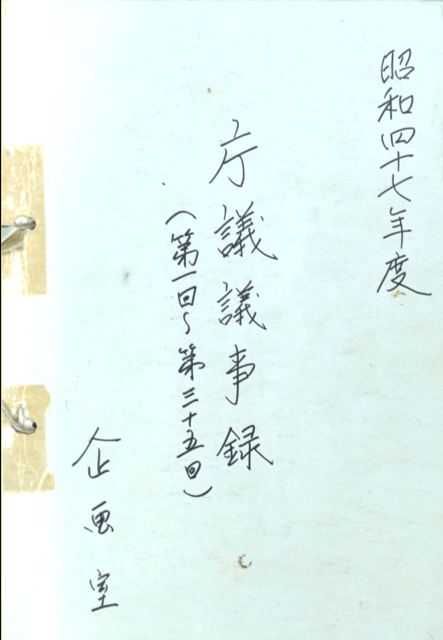 昭和四十七年度
庁議議事録
（第一回～第三十五回）
企画室